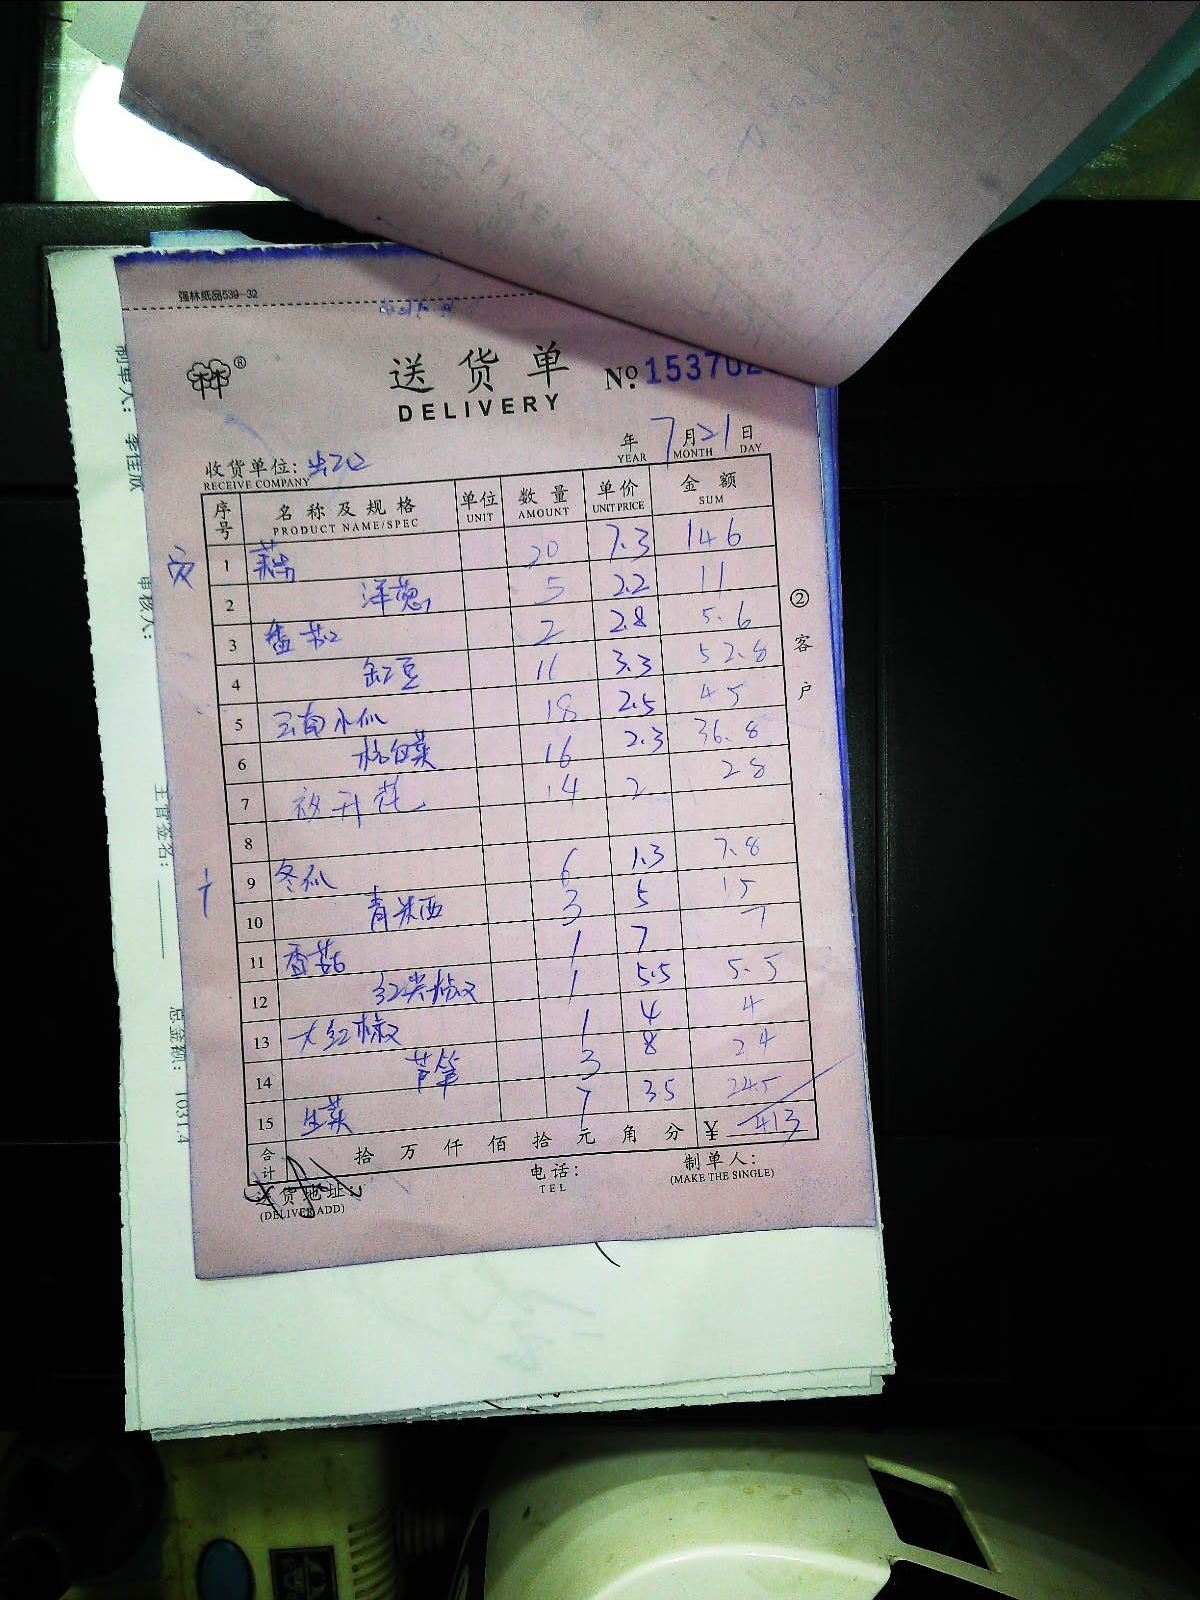 强林纸品539-32
送货单
DELIVERY
№ 153702
年 7月21日
YEAR MONTH DAY
收货单位:
RECEIVE COMPANY
序号 名称及规格 单位 数量 单价 金额
PRODUCT NAME/SPEC UNIT AMOUNT UNIT PRICE SUM
1 藕 20 7.3 146
2 洋葱 5 2.2 11
3 番茄 2 2.8 5.6
4 缸豆 11 3.3 52.8
5 云南小瓜 18 2.5 45
6 16 2.3 36.8
7 14 2 28
8
9 冬瓜 6 1.3 7.8
10 青笋 3 5 15
11 香菇 1 7 7
12 红尖椒 1 5.5 5.5
13 大红椒 1 4 4
14 芦笋 3 8 24
15 生菜 7 3.5 24.5
合计 拾 万 仟 佰 拾 元 角 分 ¥ 413
送货地址:
(DELIVER ADD)
电话:
TEL
制单人:
(MAKE THE SINGLE)
②客户
制单人:
审核人:
主管签名:
总金额: 1031.4